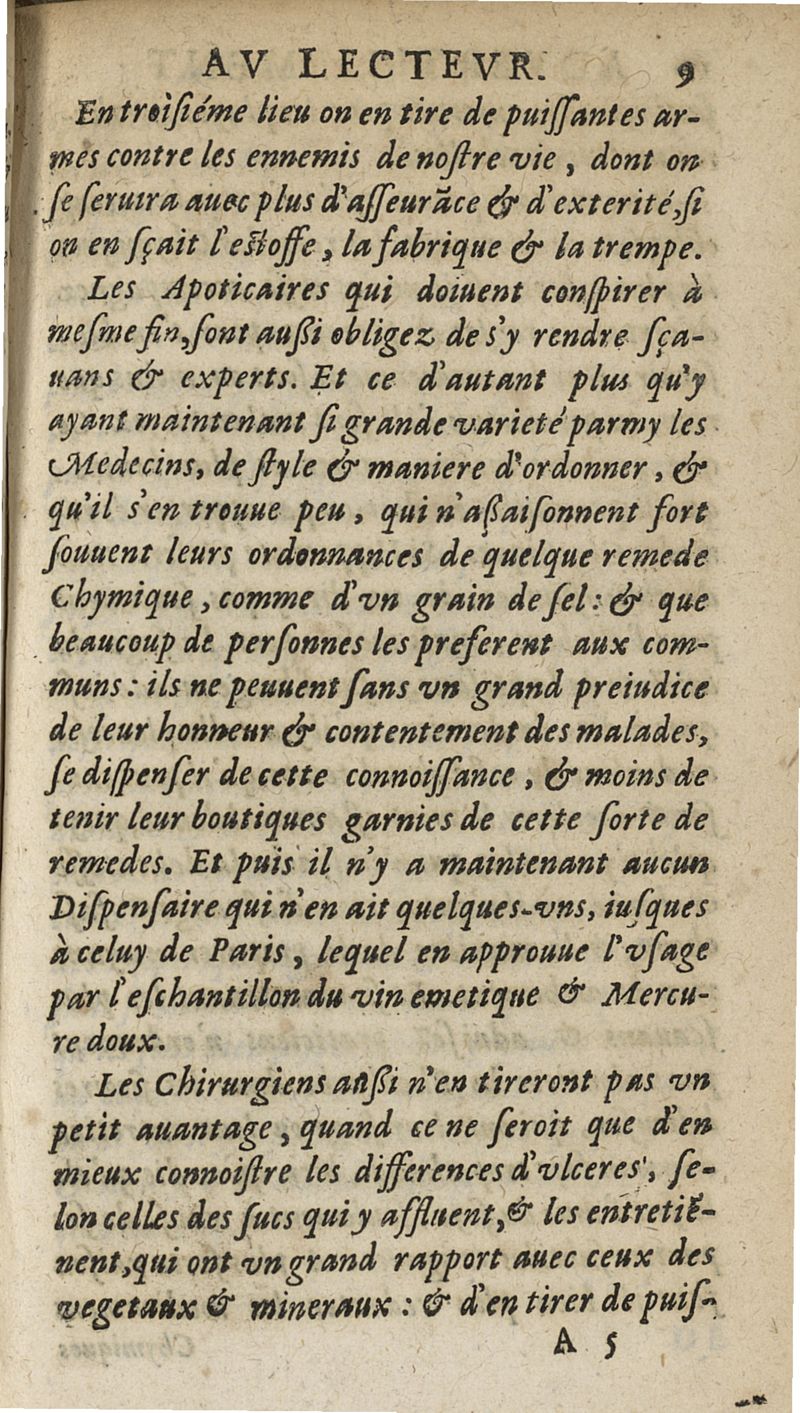 AV LECTEVR. 9
En troiſiéme lieu on en tire de puiſſantes ar-
mes contre les ennemis de noſtre vie, dont on
ſe ſeruira auec plus d'aſſeurãce & d'exterité, ſi
on en ſçait l'eſtoffe, la fabrique & la trempe.
Les Apoticaires qui doiuent conſpirer à
meſme fin, ſont auſſi obligez de s'y rendre ſça-
uans & experts. Et ce d'autant plus qu'y
ayant maintenant ſi grande varieté parmy les
Medecins, de ſtyle & maniere d'ordonner, &
qu'il s'en trouue peu, qui n'aſſaiſonnent fort
ſouuent leurs ordonnances de quelque remede
Chymique, comme d'vn grain de ſel: & que
beaucoup de perſonnes les preferent aux com-
muns: ils ne peuuent ſans vn grand preiudice
de leur honneur & contentement des malades,
ſe diſpenſer de cette connoiſſance, & moins de
tenir leur boutiques garnies de cette ſorte de
remedes. Et puis il n'y a maintenant aucun
Diſpenſaire qui n'en ait quelques-vns, iuſques
à celuy de Paris, lequel en approuue l'vſage
par l'eſchantillon du vin emetique & Mercu-
re doux.
Les Chirurgiens auſſi n'en tireront pas vn
petit auantage, quand ce ne ſeroit que d'en
mieux connoiſtre les differences d'vlceres, ſe-
lon celles des ſucs qui y affluent, & les entretiẽ-
nent, qui ont vn grand rapport auec ceux des
vegetaux & mineraux: & d'en tirer de puiſ-
A 5